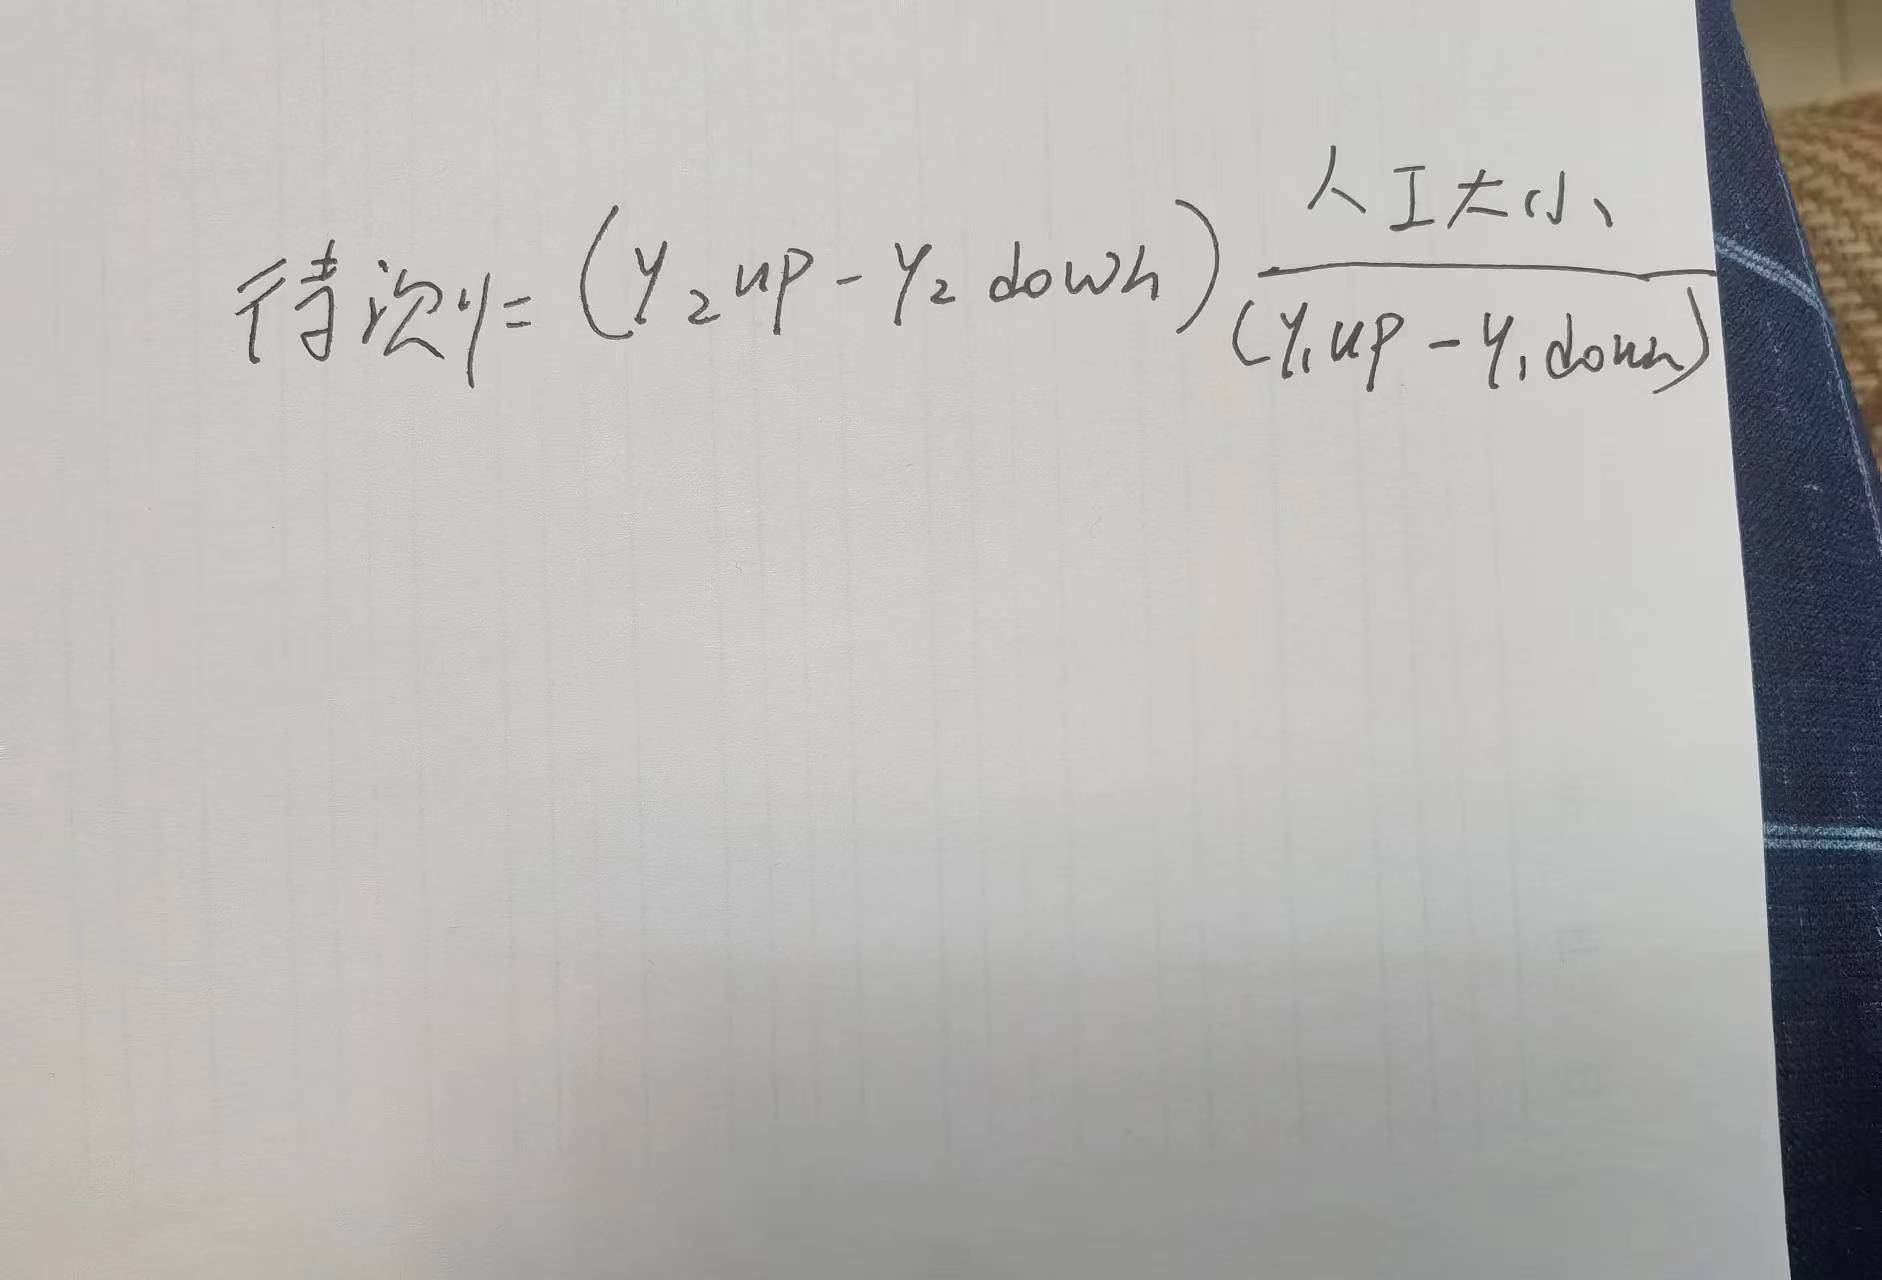 待测y=(y₂up-y₂down) 人工大小/(y₁up-y₁down)